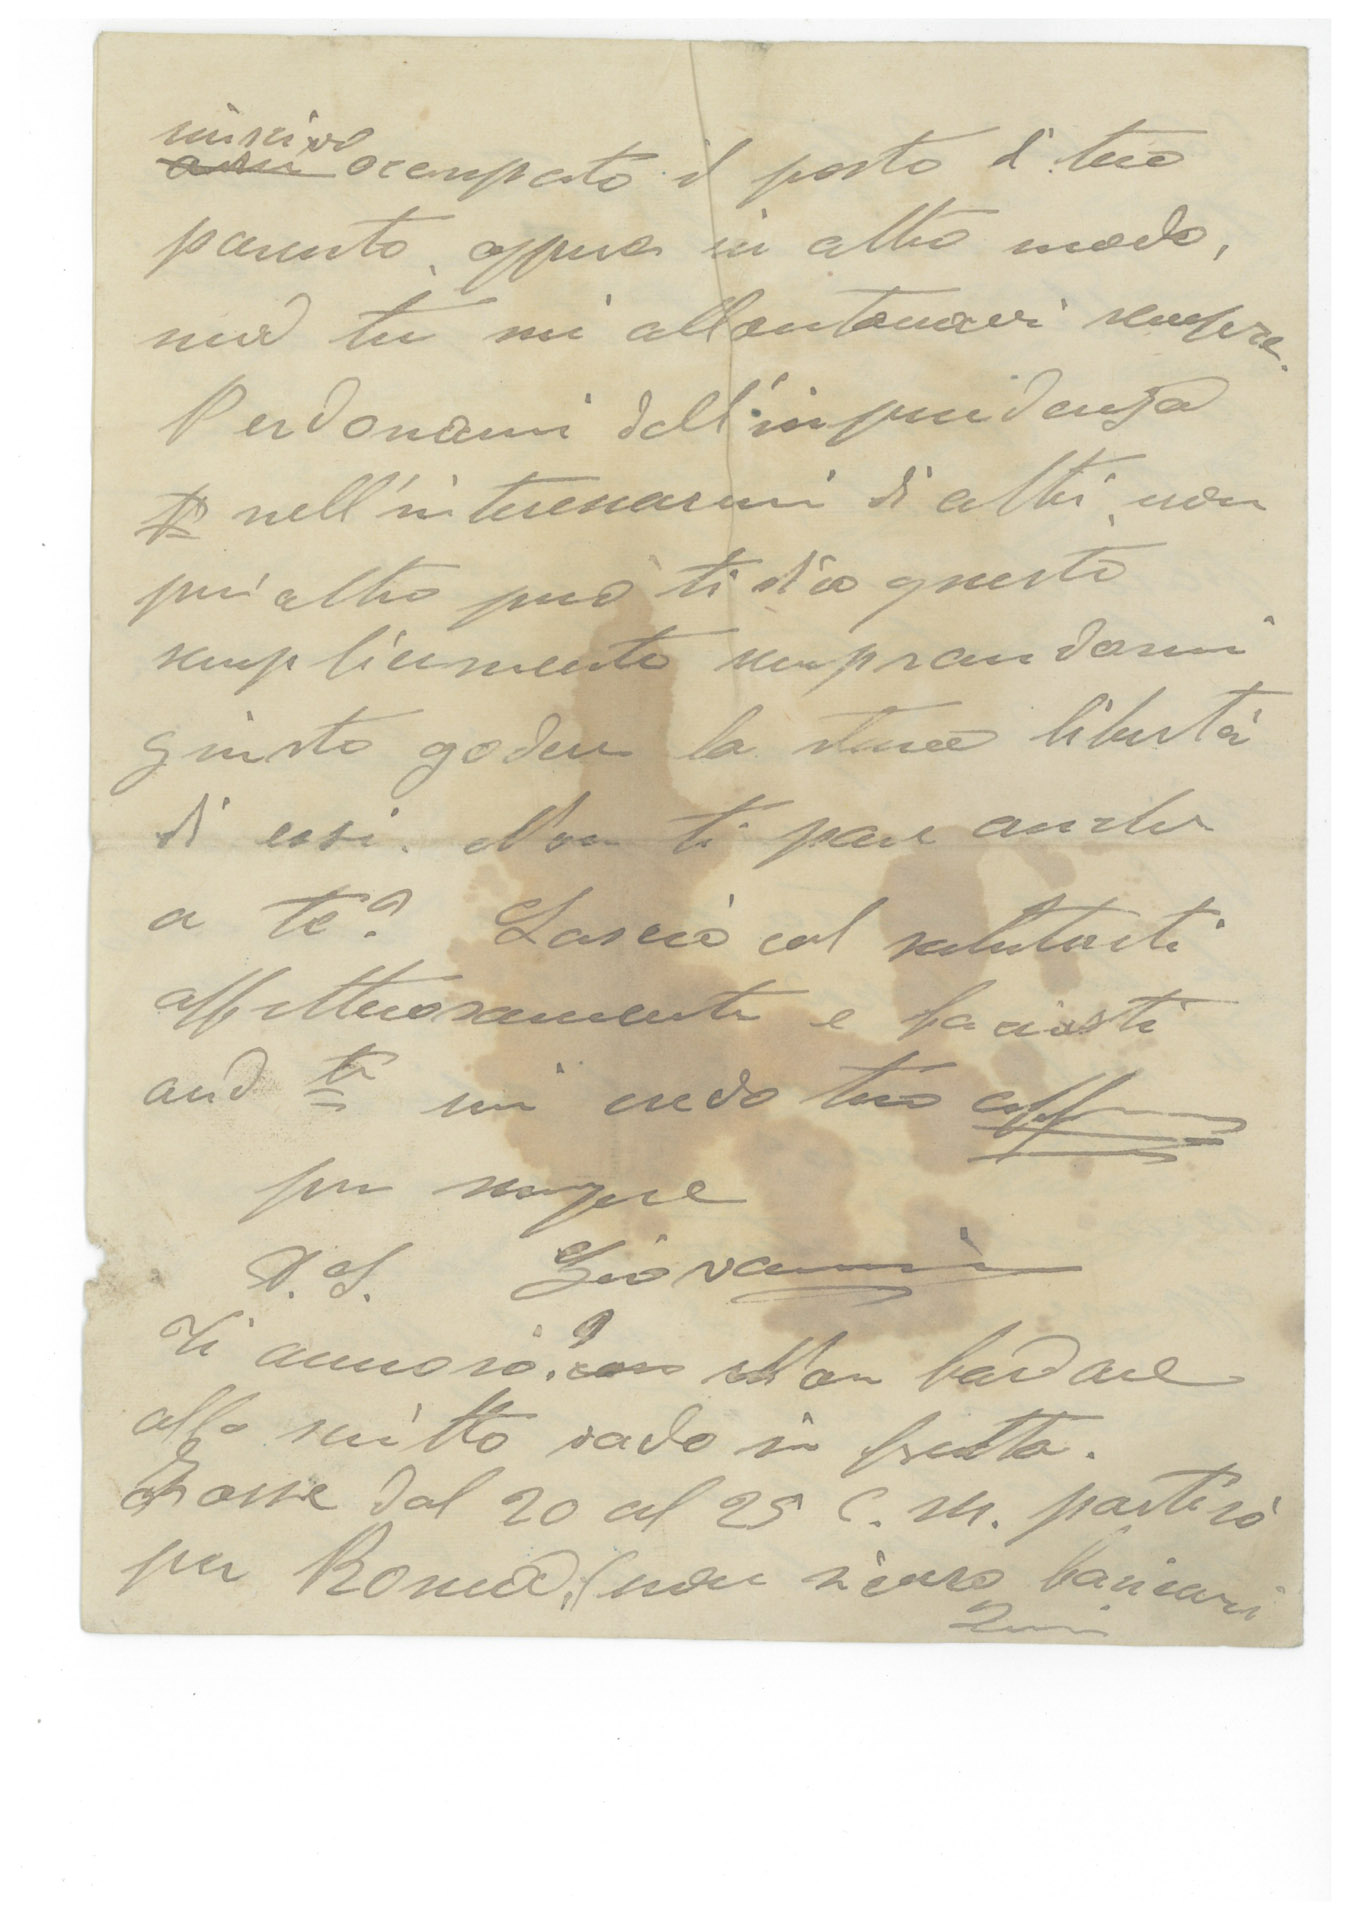 riuscivo
occupato il posto d tuo
parente, oppure in altro modo,
ma tu mi allontanavi sempre.
Perdonami dell'inprudenza
nell'interessarmi di altri, non
più altro però ti dico questo
semplicemente semprandomi
giusto godere la stessa libertà
di essi. Non ti pare anche
a te? Lascio col salutarti
affettuosamente e baciarti
mi credo tuo aff
per sempre
P.S. Giovanni
Ti annoio? Non badare
allo scritto vado in fretta.
Forse dal 20 al 25 C. M. partirò
per Roma, (non sicuro